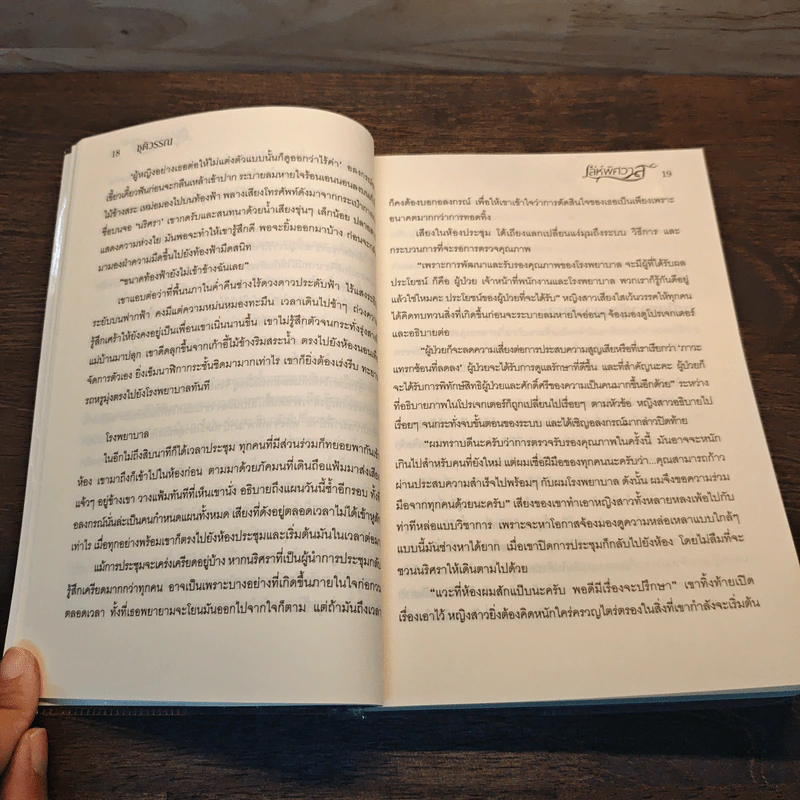 18 ชุติวรรณ
'ผู้หญิงอย่างเธอต่อให้ไม่แต่งตัวแบบนั้นก็ดูออกว่าไร้ค่า' อลงกรณ์
เขี้ยวเคี้ยวฟันก่อนจะกลืนเหล้าเข้าปาก ระบายลมหายใจร้อนเอนนอนลงบน
ไม้ข้างสระ เหม่อมองไปบนท้องฟ้า พลางเสียงโทรศัพท์ดังมาจากกระเป๋า
ชื่อบนจอ 'นริศรา' เขากดรับและสนทนาด้วยน้ำเสียงขุ่นๆ เล็กน้อย
แสดงความห่วงใย มันพอจะทำให้เขารู้สึกดี พอจะยิ้มออกมาบ้าง ก่อนจะ
มามองฝ่าความมืดขึ้นไปยังท้องฟ้ามืดสนิท
"ขนาดท้องฟ้ายังไม่เข้าข้างฉันเลย"
เขาแอบต่อว่าที่พื้นนภาในค่ำคืนช่างไร้ดวงดาวประดับฟ้า ไร้แสง
ระยับบนฟากฟ้า คงมีแต่ความหม่นหมองทะมึน เวลาเดินไปช้าๆ
รู้สึกเศร้าให้ยังคงอยู่เป็นเพื่อนเขาเนิ่นนานขึ้น เขาไม่รู้สึกตัวจนกระทั่งรุ่ง
แม่บ้านมาปลุก เขาดีดลุกขึ้นจากเก้าอี้ไม้ข้างริมสระน้ำ ตรงไปยังห้องนอน
จัดการตัวเอง ยิ่งเข็มนาฬิกากระชั้นชิดมามากเท่าไร เขาก็ยิ่งต้องเร่งรีบ
รถหรูมุ่งตรงไปยังโรงพยาบาลทันที
โรงพยาบาล
ในอีกไม่ถึงสิบนาทีก็ได้เวลาประชุม ทุกคนที่มีส่วนร่วมก็ทยอยพากัน
ห้อง เขามาถึงก็เข้าไปในห้องก่อน ตามมาด้วยภัคมนที่เดินถือแฟ้มมาส่งเสียง
แจ้วๆ อยู่ข้างเขา วางแฟ้มทันทีที่เห็นเขานั่ง อธิบายถึงแผนวันนี้ซ้ำอีกรอบ
อลงกรณ์นั่นล่ะเป็นคนกำหนดแผนทั้งหมด เสียงที่ดังอยู่ตลอดเวลาไม่ได้เข้าหู
เท่าไร เมื่อทุกอย่างพร้อมเขาก็ตรงไปยังห้องประชุมและเริ่มต้นมันในเวลาต่อมา
แม้การประชุมจะเคร่งเครียดอยู่บ้าง หากนริศราที่เป็นผู้นำการประชุมกลับ
รู้สึกเครียดมากกว่าทุกคน อาจเป็นเพราะบางอย่างที่เกิดขึ้นภายในใจก่อกวน
ตลอดเวลา ทั้งที่เธอพยายามจะโยนมันออกไปจากใจก็ตาม แต่ถ้ามันถึงเวลา
เล่ห์พิศวาส 19
ก็คงต้องบอกอลงกรณ์ เพื่อให้เขาเข้าใจว่าการตัดสินใจของเธอเป็นเพียงเพราะ
อนาคตมากกว่าการทอดทิ้ง
เสียงในห้องประชุม ได้เถียงแลกเปลี่ยนแง่มุมถึงระบบ วิธีการ และ
กระบวนการที่จะรอการตรวจคุณภาพ
"เพราะการพัฒนาและรับรองคุณภาพของโรงพยาบาล จะมีผู้ที่ได้รับผล
ประโยชน์ ก็คือ ผู้ป่วย เจ้าหน้าที่พนักงานและโรงพยาบาล พวกเราก็รู้กันดีอยู่
แล้วใช่ไหมคะ ประโยชน์ของผู้ป่วยที่จะได้รับ" หญิงสาวเสียงใสเว้นวรรคให้ทุกคน
ได้คิดทบทวนสิ่งที่เกิดขึ้นก่อนจะระบายลมหายใจอ่อนๆ จ้องมองดูโปรเจกเตอร์
และอธิบายต่อ
"ผู้ป่วยก็จะลดความเสี่ยงต่อการประสบความสูญเสียหรือที่เราเรียกว่า 'ภาวะ
แทรกซ้อนที่ลดลง' ผู้ป่วยจะได้รับการดูแลรักษาที่ดีขึ้น และที่สำคัญนะคะ ผู้ป่วยก็
จะได้รับการพิทักษ์สิทธิผู้ป่วยและศักดิ์ศรีของความเป็นคนมากขึ้นอีกด้วย" ระหว่าง
ที่อธิบายภาพในโปรเจกเตอร์ก็ถูกเปลี่ยนไปเรื่อยๆ ตามหัวข้อ หญิงสาวอธิบายไป
เรื่อยๆ จนกระทั่งจบขั้นตอนของระบบ และได้เชิญอลงกรณ์มากล่าวปิดท้าย
"ผมทราบดีนะครับว่าการตรวจรับรองคุณภาพในครั้งนี้ มันอาจจะหนัก
เกินไปสำหรับคนที่ยังใหม่ แต่ผมเชื่อฝีมือของทุกคนนะครับว่า...คุณสามารถก้าว
ผ่านประสบความสำเร็จไปพร้อมๆ กับผมโรงพยาบาล ดังนั้น ผมจึงขอความร่วม
มือจากทุกคนด้วยนะครับ" เสียงของเขาทำเอาหญิงสาวทั้งหลายหลงเพ้อไปกับ
ท่าทีหล่อแบบวิชาการ เพราะจะหาโอกาสจ้องมองดูความหล่อเหลาแบบใกล้ๆ
แบบนี้มันช่างหาได้ยาก เมื่อเขาปิดการประชุมก็กลับไปยังห้อง โดยไม่ลืมที่จะ
ชวนนริศราให้เดินตามไปด้วย
"แวะที่ห้องผมสักแป๊บนะครับ พอดีมีเรื่องจะปรึกษา" เขาทิ้งท้ายเปิด
เรื่องเอาไว้ หญิงสาวยิ่งต้องคิดหนักใคร่ครวญไตร่ตรองในสิ่งที่เขากำลังจะเริ่มต้น